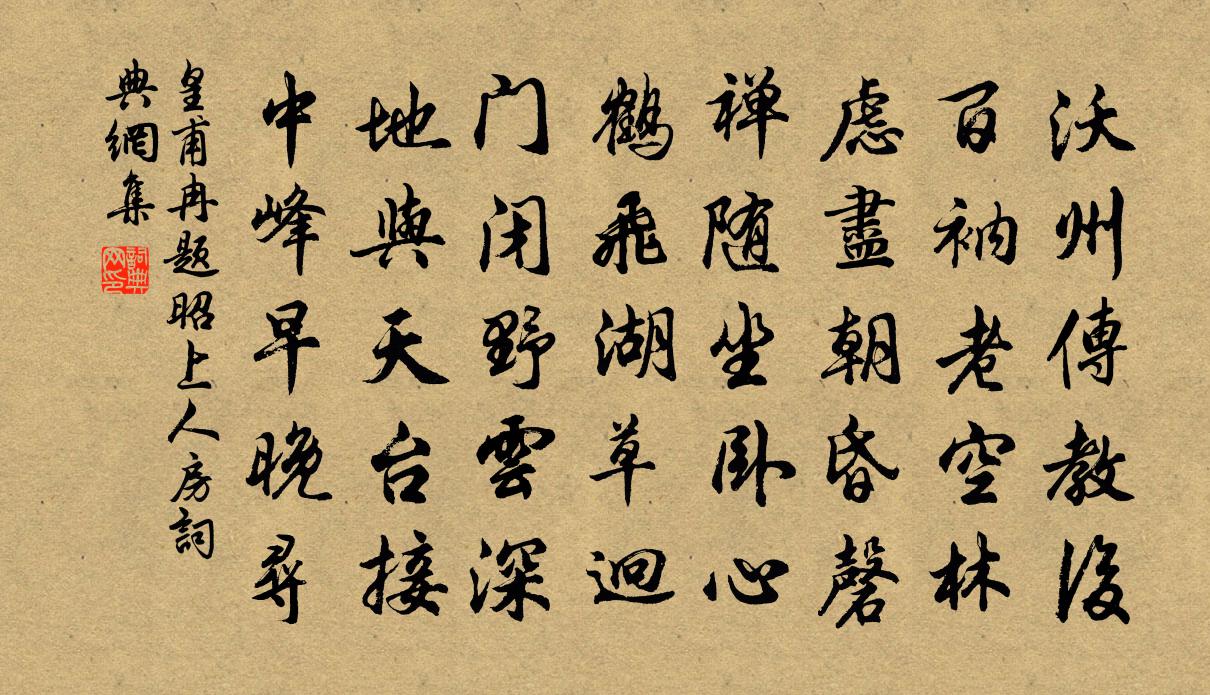 沃州傳教後
百衲老空林
慮盡朝昏磬
禅随坐卧心
鶴飛湖草迥
门闭野雲深
地與天台接
中峰早晚尋
皇甫冉题昭上人房詞
典網集
詞典
网印